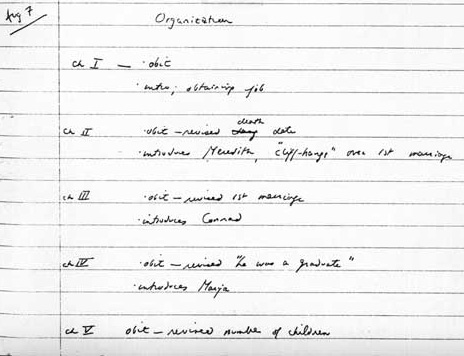 Aug 7
Organization
ch I — · obit
· intro; obtaining job
ch II · obit – revised death date
· introduces Meredith, "cliff-hangs" over 1st marriage
ch III · obit – revised 1st marriage
· introduces Conrad
ch IV · obit – revised "he was a graduate"
· introduces Marja
ch V obit – revised number of children